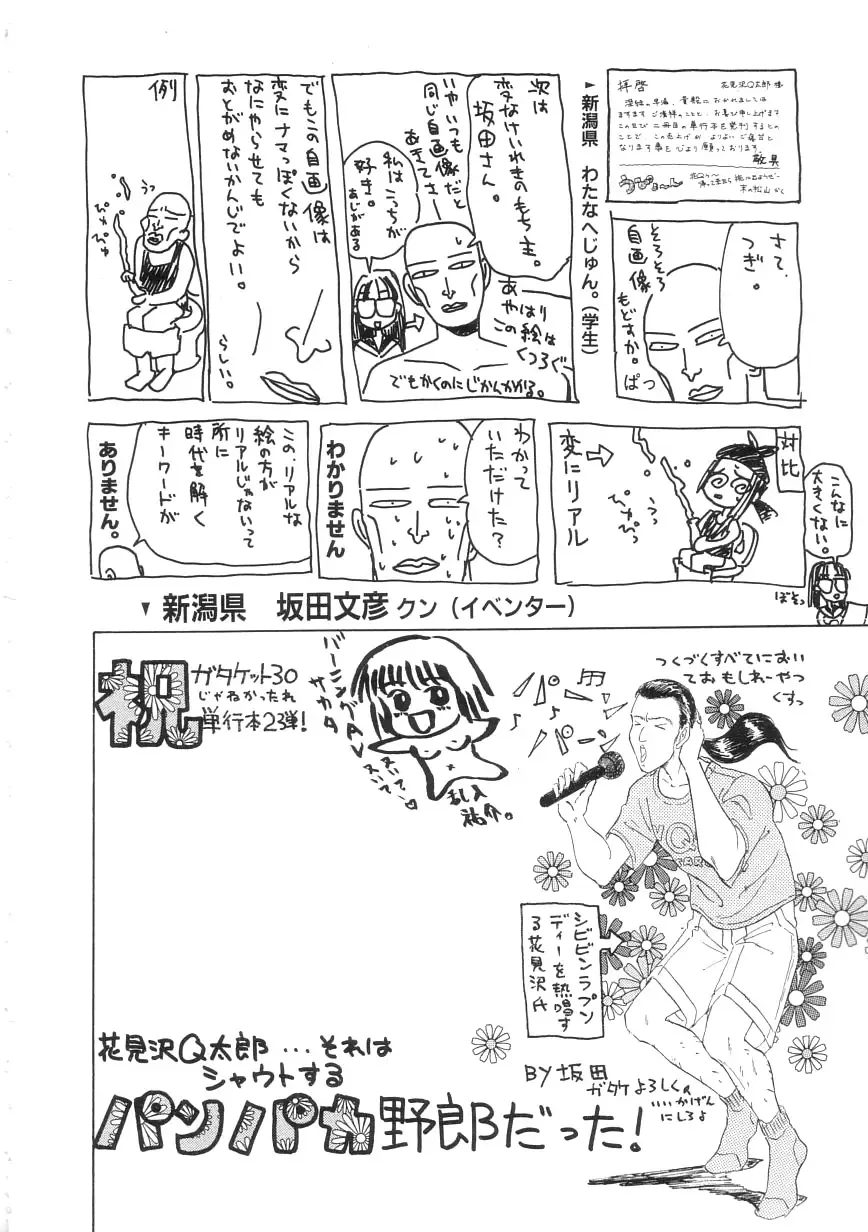 拝啓
花見沢Q太郎 様
ますます ご清祥のことと、お喜び申し上げます
なります事を
敬具
▼新潟県 わたなべじゅん。(学生)
さて、
つぎ。
そろそろ
自画像
もどすか。
ぱっ
次は
変なけいれきのもち主。
坂田さん。
いやいつも
同じ自画像だと
あきてさ
私はこっちが
好き。
あじがある
あ
やはり
この絵は
くつろぐ
でもかくのにじかんかかる。
でもこの自画像は
変にナマっぽくないから
なにやらせても
おとがめないかんじでよい。
らしい。
例
うっ
ぴゅぴゅ
対比
変にリアル
うっ
ぴゅぴゅっ
こんなに
大きくない。
ぼそっ
わかって
いただけた?
わかりません
この、リアルな
絵の方が
リアルじゃないって
所に
時代を解く
キーワードが
ありません。
▼新潟県 坂田文彦クン(イベンター)
祝
ガタケット30
じゃねかったれ
単行本2弾!
バーニングAV
サカタ
ヌいて、ヌいて、
乱入
祐介。
パ
パパー
つくづくすべてにおい
ておもしれーやつ
くすっ
シビビンラプン
ディーを熱唱す
る花見沢氏
花見沢Q太郎…それは
シャウトする
パンパカ野郎だった!
BY坂田
ガタケよろしくの
いいかげん
にしろよ